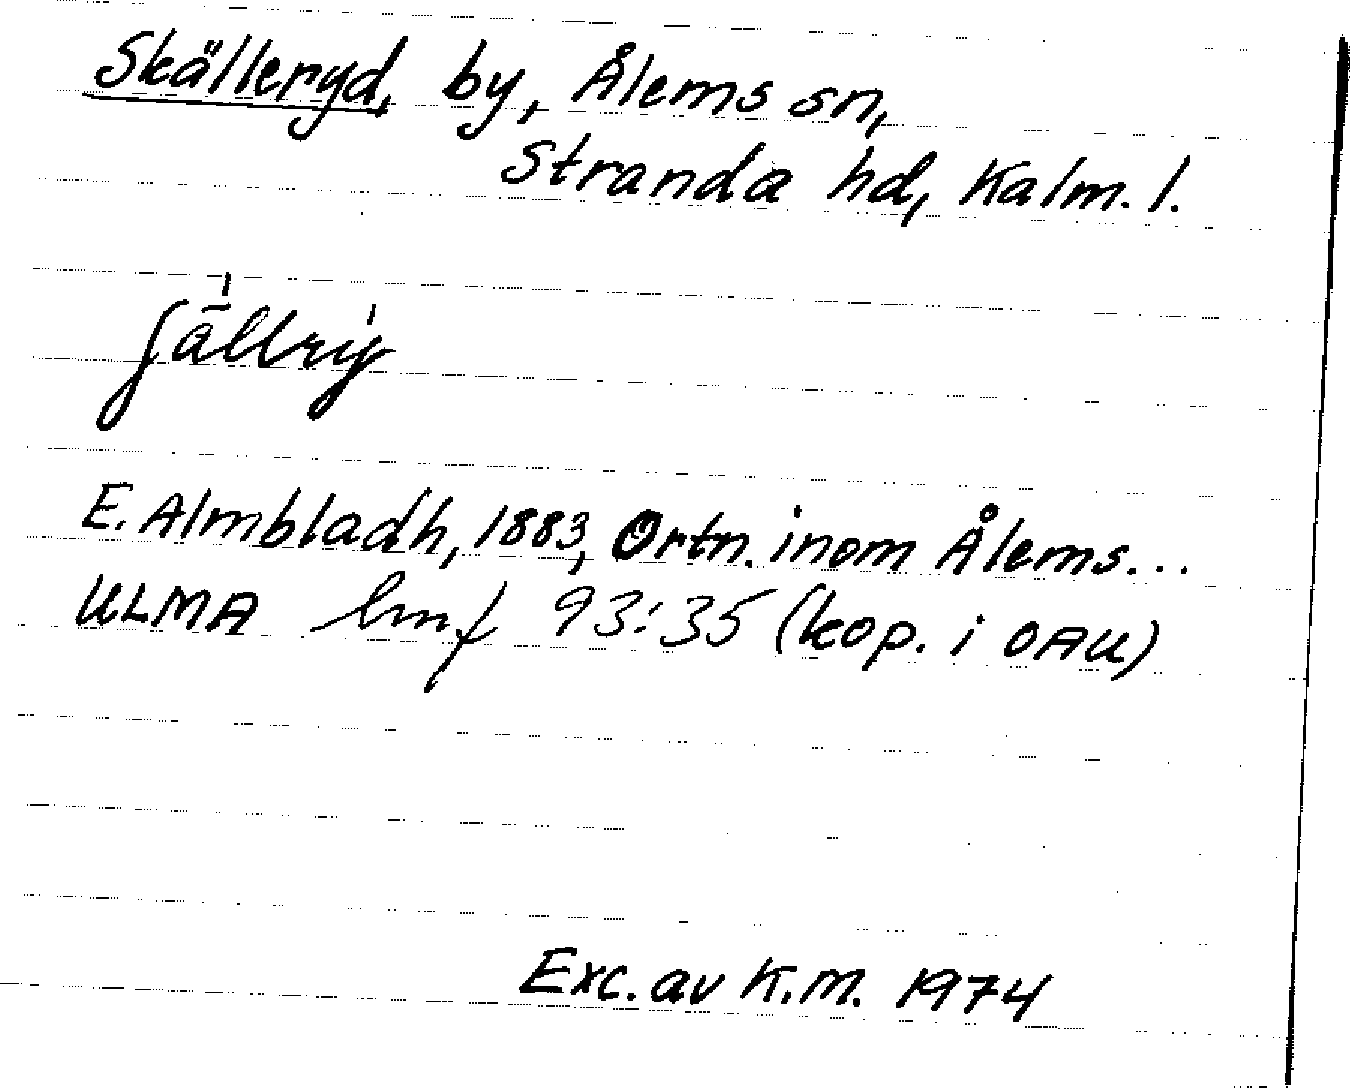 Skälleryd, by, Ålems sn,
Stranda hd, Kalm. l.
E. Almbladh, 1883, Ortn. inom Ålems...
ULMA 93:35 (kop. i OAU)
Exc. av K.M. 1974